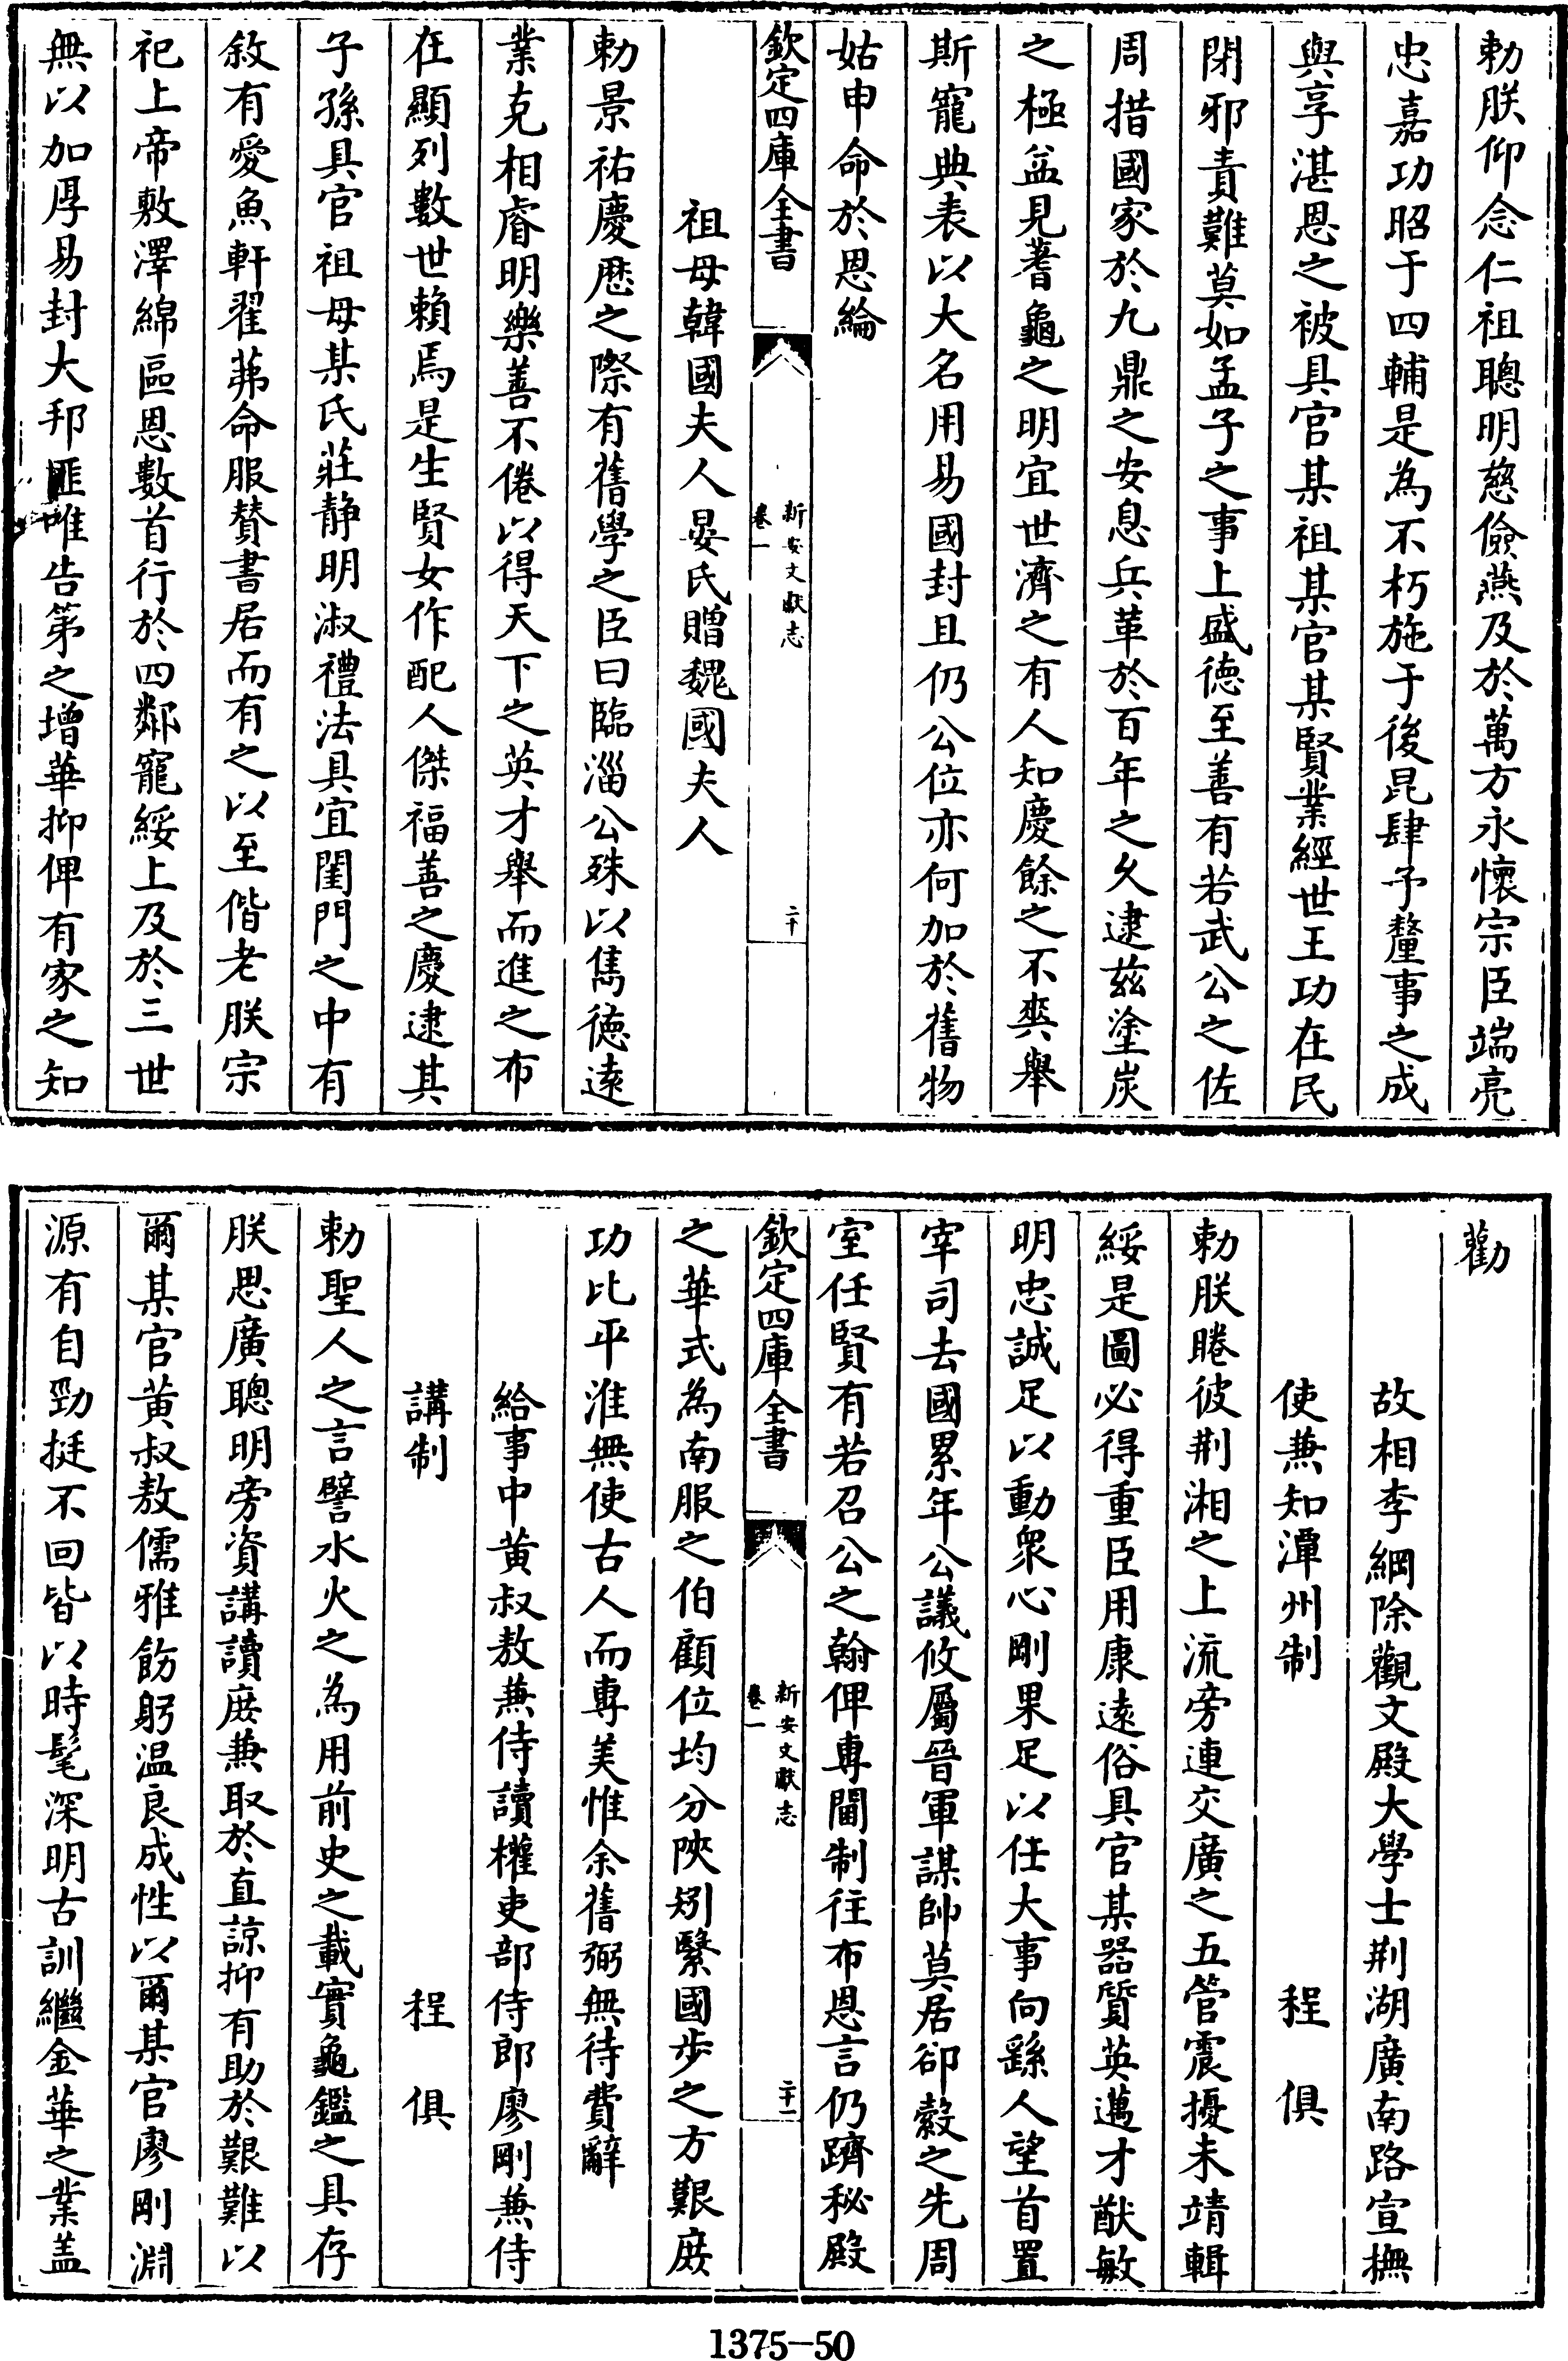 勅朕仰念仁祖聰明慈儉燕及於萬方永懷宗臣端亮
忠嘉功昭于四輔是為不朽施于後昆肆予釐事之成
與享湛恩之被具官某祖某官某賢業經世王功在民
閉邪責難莫如孟子之事上盛徳至善有若武公之佐
周措國家於九鼎之安息兵革於百年之久逮兹塗炭
之極益見蓍龜之明宜世濟之有人知慶餘之不爽舉
斯寵典表以大名用易國封且仍公位亦何加於舊物
姑申命於恩綸
欽定四庫全書
新安文獻志
卷一
二十
祖母韓國夫人晏氏贈魏國夫人
勅景祐慶厯之際有舊學之臣曰臨淄公殊以雋徳逺
業克相睿明樂善不倦以得天下之英才舉而進之布
在顯列數世賴焉是生賢女作配人傑福善之慶逮其
子孫具官祖母某氏莊静明淑禮法具宜閨門之中有
敘有愛魚軒翟茀命服賛書居而有之以至偕老朕宗
祀上帝敷澤綿區恩數首行於四鄰寵綏上及於三世
無以加厚易封大邦匪唯告第之增華抑俾有家之知
勸
故相李綱除觀文殿大學士荆湖廣南路宣撫
使兼知潭州制 程俱
勅朕睠彼荆湘之上流旁連交廣之五管震擾未靖輯
綏是圖必得重臣用康逺俗具官某器質英邁才猷敏
明忠誠足以動衆心剛果足以任大事向繇人望首置
宰司去國累年公議攸屬晉軍謀帥莫居郤縠之先周
室任賢有若召公之翰俾專閫制往布恩言仍躋秘殿
欽定四庫全書
新安文獻志
卷一
二十一
之華式為南服之伯顧位均分陜矧繄國步之方艱庶
功比平淮無使古人而專美惟余舊弼無待費辭
給事中黄叔敖兼侍讀權吏部侍郎廖剛兼侍
講制 程俱
勅聖人之言譬水火之為用前史之載實龜鑑之具存
朕思廣聰明旁資講讀庶兼取於直諒抑有助於艱難以
爾某官黄叔敖儒雅飭躬温良成性以爾某官廖剛淵
源有自勁挺不回皆以時髦深明古訓繼金華之業盖
1375-50